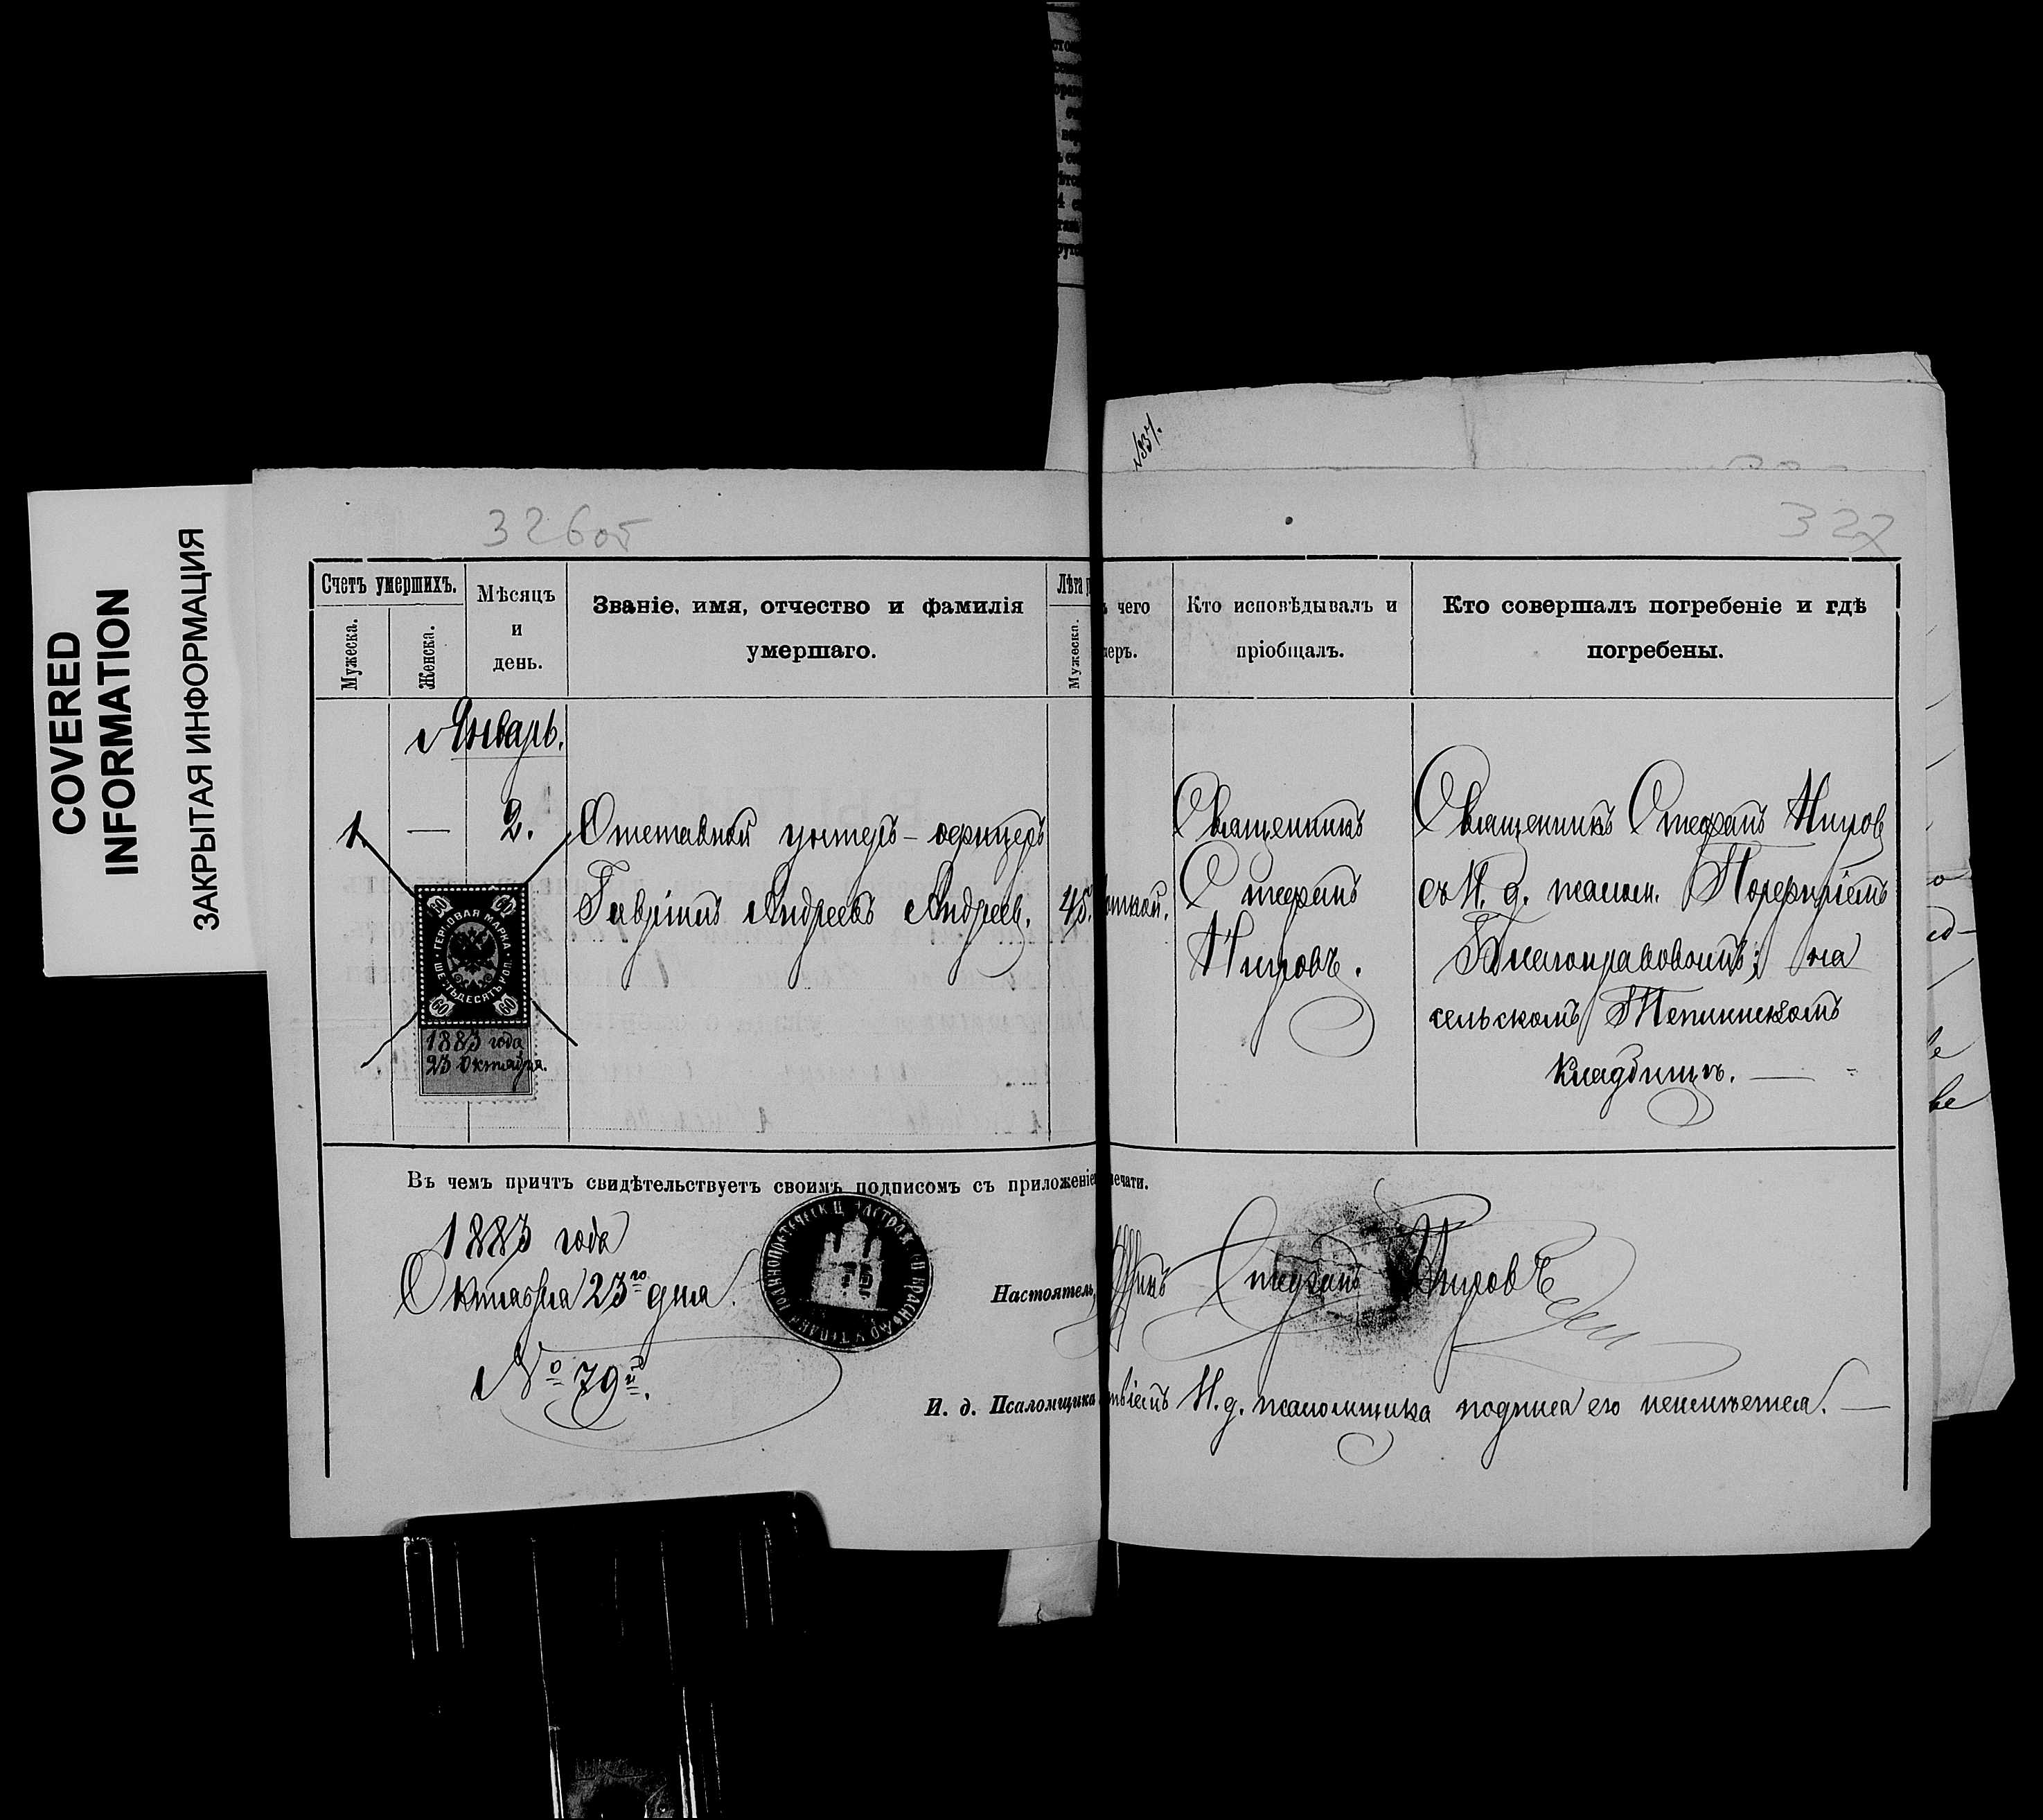 COVERED
INFORMATION
ЗАКРЫТАЯ ИНФОРМАЦИЯ
№37.
326об
327
Счетъ умершихъ.
Мужеска.
Женска.
Мѣсяцъ
и
день.
Званіе, имя, отчество и фамилія
умершаго.
Лѣта
Мужеска.
чего
меръ.
Кто исповѣдывалъ и
пріобщалъ.
Кто совершалъ погребеніе и гдѣ
погребены.
Январь.
1. — 2. Отставной унтеръ-офицеръ
Гавріилъ Андреевъ Андреев. 45.
Священникъ
Стефанъ
Нировъ.
Священникъ Стефанъ Ниров
съ И. д. псалом. Порфиріемъ
Благонравовымъ; на
сельскомъ Тепикинскомъ
кладбищѣ. —
ГЕРБОВАЯ МАРКА
ШЕСТЬДЕСЯТЪ КОП.
60 60
60 60
1883 года
23 Октября.
Въ чемъ причтъ свидѣтельствуетъ своимъ подписомъ съ приложеніе печати.
1883 года
Октября 23го дня.
№ 79й.
Настоятель, Стефанъ Нировъ
И. д. Псаломщика И. д. псаломщика подписа его неимѣется. —